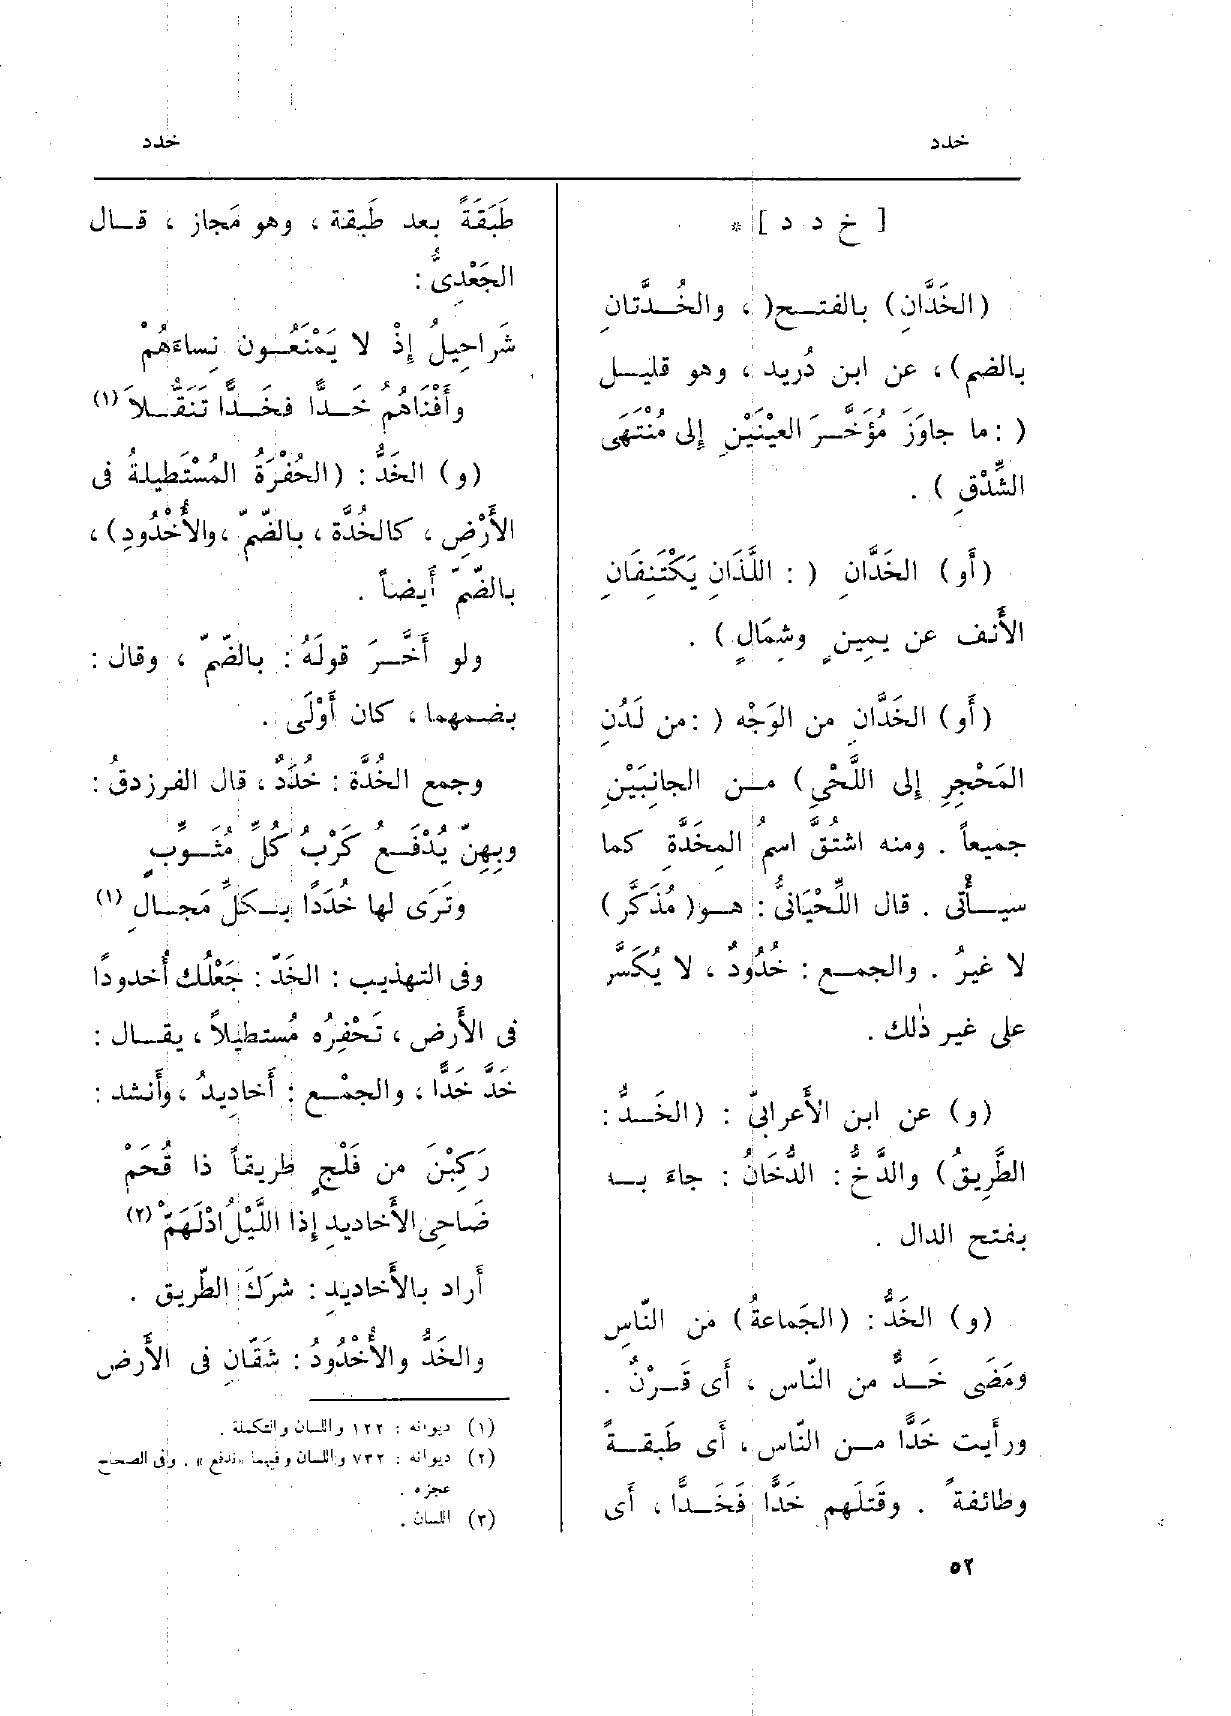 خدد
خدد
[ خ د د ] *
(الخَدَّانِ) بالفتــح( ، والخُــدَّتانِ
بالضم) ، عن ابن دُريد ، وهو قليــل
( :ما جاوَزَ مُؤَخَّــرَ العيْنَيْنِ إلى مُنْتَهَى
الشِّدْقِ ) .
(أَو) الخَدَّانِ ( : اللَّذَانِ يَكْتَنِفَانِ
الأَنف عن يمِينٍ وشِمَالٍ ) .
(أَو) الخَدَّانِ من الوَجْه ( :من لَدُنِ
المَحْجِرِ إلى اللَّحْيِ ) مــن الجانِبَيْنِ
جميعاً . ومنه اشتُقَّ اسمُ المِخَدَّةِ كما
سيــأْتى . قال اللِّحْيَانىُّ : هــو( مُذَكَّر )
لا غيرُ . والجمــع : خُدُودٌ ، لا يُكَسَّر
على غير ذٰلك .
(و) عن ابن الأَعرابىّ : (الخَــدُّ :
الطَّرِيقُ) والدَّخُّ : الدُّخَانُ : جاءَ بــه
بفتح الدال .
(و) الخَدُّ : (الجَماعةُ) من النّاسِ
ومَضَى خَــدٌّ من النّاس ، أَى قَــرْنٌ .
ورأَيت خَدًّا مــن النّاس ، أَى طَبقــةً
وطائفةً . وقَتلَهم خَدًّا فَخَــدًّا ، أَى
طَبَقَةً بعد طَبقة ، وهو مَجاز ، قــال
الجَعْدِىُّ :
شَراحِيلُ إِذْ لا يَمْنَعُــون نِساءَهُمْ
وأَفْنَاهُم خَــدًّا فخَــدًّا تَنَقُّــلاَ (١)
(و) الخَدُّ : (الحُفْرَةُ المُسْتَطِيلةُ فى
الأَرْضِ ، كالخُدَّة ، بالضّمّ ، والأُخْدُودِ) ،
بالضّمّ أَيضاً .
ولو أَخَّــرَ قولَهُ : بالضّمّ ، وقال :
بضمهما ، كان أَوْلَى .
وجمع الخُدَّة : خُدَدٌ ، قال الفرزدقُ :
وبِهِنّ يُدْفَــع كَرْبُ كُلِّ مُثَــوِّبٍ
وتَرَى لها خُدَدًا بــكلِّ مَجــالِ (١)
وفى التهذيب : الخَدّ : جَعْلُك أُخدودًا
فى الأَرض ، تَحْفِرُه مُستطيلاً ، يقــال :
خَدَّ خَدًّا ، والجمْــع : أَخاديدُ ، وأَنشد :
رَكِبْنَ من فَلْجٍ طريقاً ذا قُحَمْ
ضَاحِى الأَخاديدِ إِذا اللَّيْلُ ادْلَهَمّْ (٢)
أَراد بالأَخاديدِ : شرَكَ الطّريق .
والخَدُّ والأُخْدُودُ : شَقّانِ فى الأَرض
(١) ديوانه : ١٢٢ واللسان والتكملة .
(٢) ديوانه : ٧٣٢ واللسان وفيهما «ندفع» . وفى الصحاح
عجزه .
(٣) اللسان .
٥٢